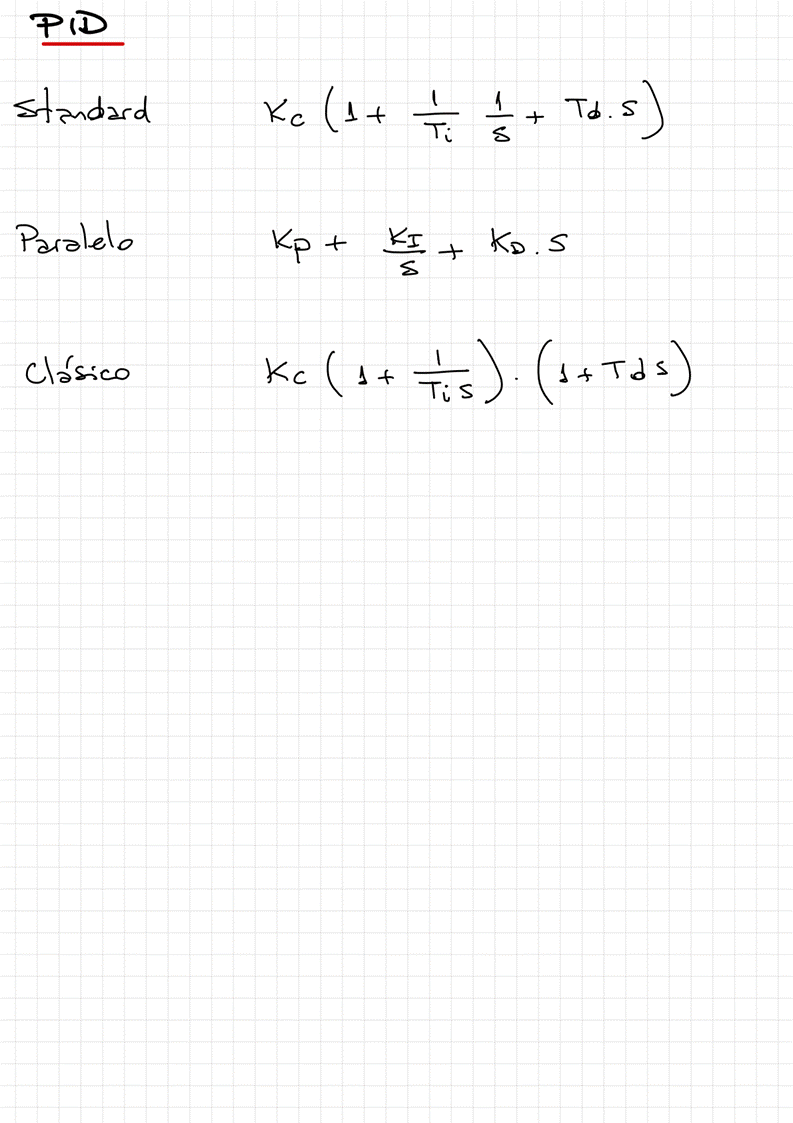 PID
Standard Kc (1 + 1/Ti 1/s + Td . s)
Paralelo Kp + KI/s + KD . s
Clásico Kc (1 + 1/Ti s) . (1 + Td s)